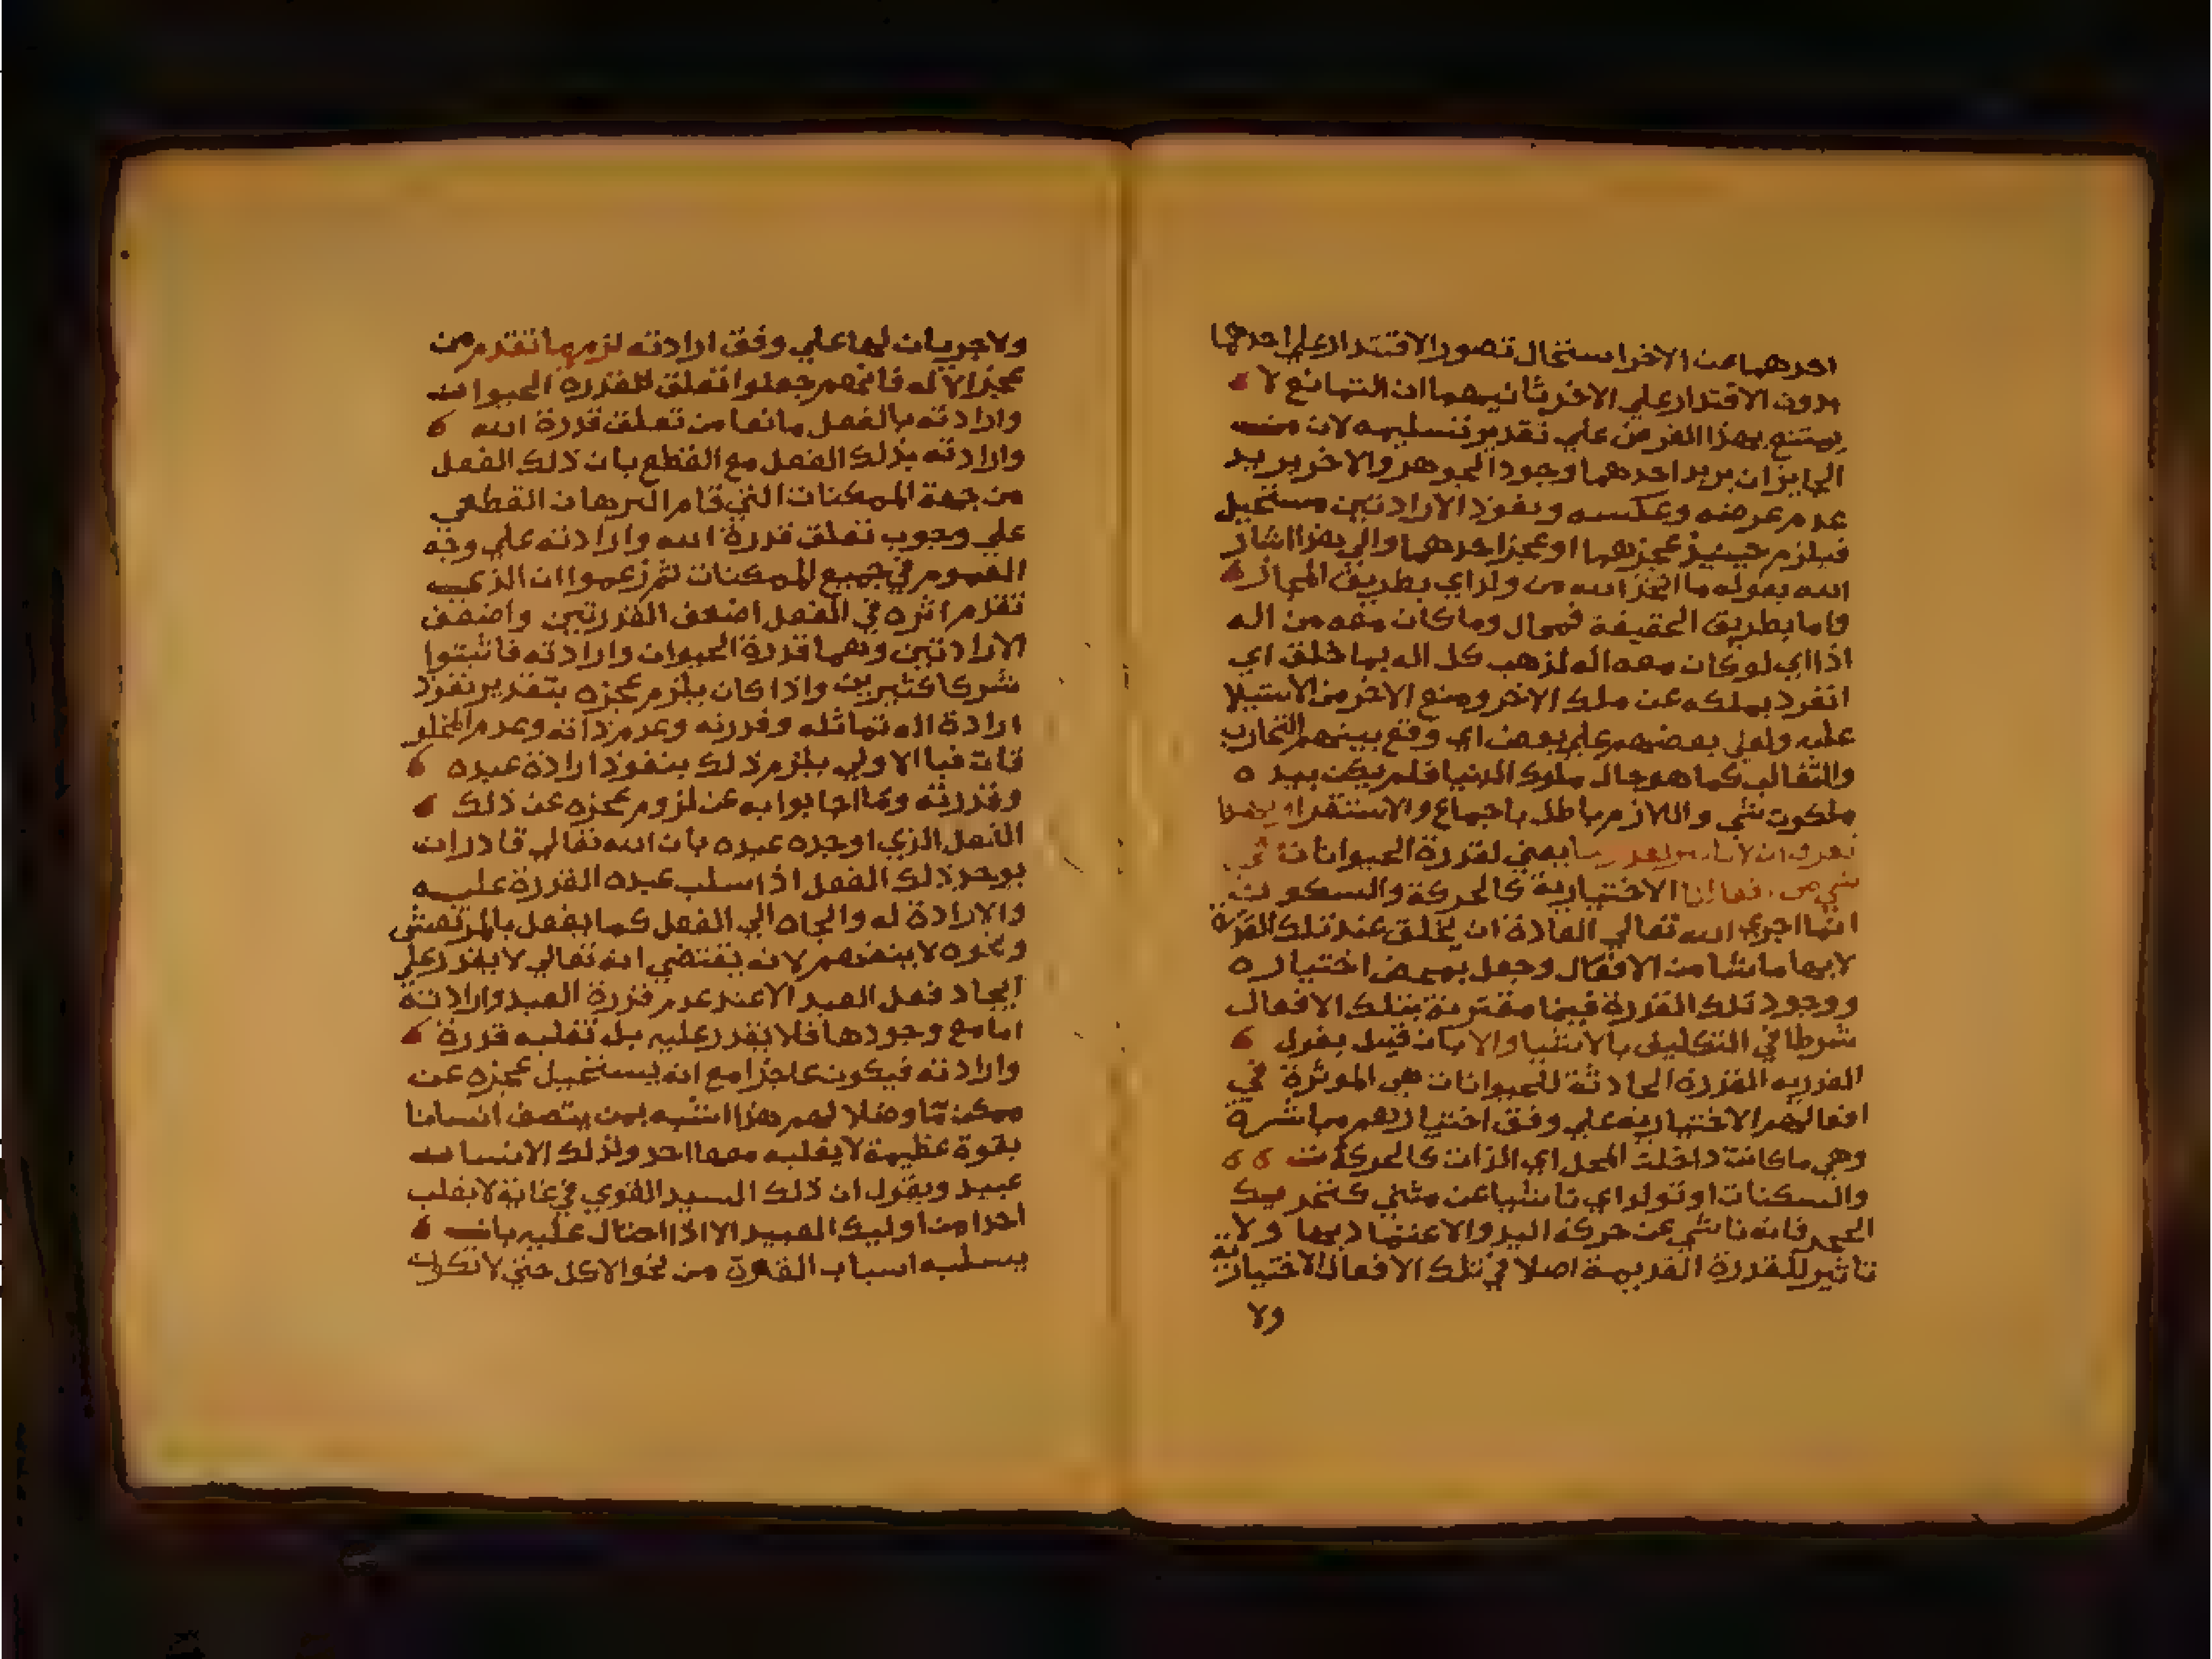 احدهما عن الاخر استحال تصور الاقتدار علي احدهما
بدون الاقتدار علي الاخر ثانيهما ان التمانع لا
يمتنع بهذا الفرض علي تقدير تسليمه لان من
الجايزان يريد احدهما وجود الجوهر والاخر يريد
عدم عرضه وعكسه ونفوذ الارادتين مستحيل
فيلزم حينيذ عجزهما او عجز احدهما والي هذا اشار
الله بقوله ما اتخذ الله من ولد اي بطريق المجاز
واما بطريق الحقيقة فمحال وما كان معه من اله
اذا اي لو كان معه اله لذهب كل اله بما خلق اي
انفرد بملكه عن ملك الاخر ومنع الاخر من الاستيلا
عليه ولعلي بعضهم علي بعض اي وقع بينهم التحارب
والتغالب كما هو حال ملوك الدنيا فلم يكن بيده
ملكوت شي واللازم باطل باجماع والاستقرا وبهذا
تعرف ان لا يعني لقدرة الحيوانات في
شي من افعالنا الاختيارية كالحركة والسكون
انما اجري الله تعالي العادة ان يخلق عند تلك القدرة
لا بها ما شا من الافعال وجعل بمحض اختياره
ووجود تلك القدرة فينا مقترنة بتلك الافعال
شرطا في التكليف بالاشيا والابات قبل يقول
القدريه القدرة الحادثة للحيوانات هي الموثرة في
افعالهم الاختيارية علي وفق اختيارهم مباشرة
وهي ما كانت داخلة المحل اي الذات كالحركات
والسكنات او تولدا اي ناشيا عن مشي كتحريك
الحجر فانه ناشي عن حركة اليد والاعتماد بها ولا
تاثير للقدرة القديمة اصلا في تلك الافعال الاختيارية
ولا
ولا جريان لها علي وفق ارادته لزمهم ما تقدم من
عجز الاله فانهم جعلوا تعلق للقدرة الحيوان
وارادته بالفعل مانعا من تعلق قدرة الله
وارادته بذلك الفعل مع القطع بان ذلك الفعل
من جهة الممكنات التي قام البرهان القطعي
علي وجوب تعلق قدرة الله وارادته علي وجه
العموم في جميع الممكنات ثم زعموا ان الذي
تقدم اثره في الفعل اضعف القدرتين واضعف
الارادتين وهما قدرة الحيوان وارادته فاثبتوا
شركا كثيرين واذا كان يلزم عجزه بتقدير نفوذ
ارادة اله تماثله وقدرته وعدم ذاته وعدم
فبالاولي يلزم ذلك بنفوذ ارادة عبده
وقدرته وما اجابوا به عن لزوم عجزه عن ذلك
الفعل الذي اوجده عبده بان الله تعالي قادر ان
يوجد ذلك الفعل اذا سلب عبده القدرة عليه
والارادة له والجاه الي الفعل كما يفعل بالمرتعش
ونحوه لا ينفعهم لانه يقتضي انه تعالي لا يقدر علي
ايجاد فعل العبد الا عند عدم قدرة العبد وارادته
اما مع وجودها فلا يقدر عليه بل تغلبه قدرة
وارادته فيكون عاجزا مع انه يستحيل عجزه عن
ممكن مّا وضلالهم هذا اشبه بمن يتصف انسانا
بقوة عظيمة لا يغلبه معها احد ولذلك الانسان
عبيد ويقول ان ذلك السيد القوي في غاية لا يغلب
احدا من اوليك العبيد الا اذا احتال عليه بان
يسلبه اسباب القوة من نحو الاكل حتي لا تكون